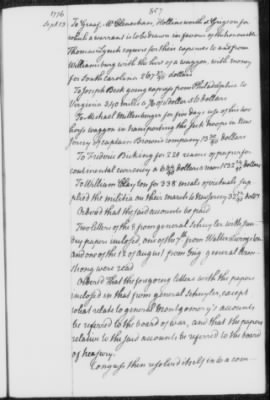 1776 357
Sept 13 To Graaf, McClenachan, Hollinsworth & Grigson for
which a warrant is to be drawn in favour of the honourable
Thomas Lynch esquire for their expences to & from
Williamsburg with the hire of a waggon, with money
for South Carolina 267 dollars
To Joseph Beck going express from Philadelphia to
Virginia 240 miles dollar 50 dollars
To Michael Millenberger for five days use of his two
horse waggon in transporting the sick troops in New
Jersey of captain Brown's company 13 dollars
To Frederic Bicking for 220 reams of paper for
continental currency a dollars
To William Clayton for 338 meals of victuals sup
plied the militia on their march to New Jersey dollars
Ordered that the said accounts be paid
Two letters of the 8 from general Schuyler with sun
dry papers enclosed, one of the 7th from Walter Livingston
and one of the of august from brig general Arm
strong were read
Ordered that the foregoing letters with the papers
enclosed in that from general Schuyler, except
what relate to general Montgomery's accounts
be referred to the board of war, and that the papers
relative to the said accounts be referred to the board
of treasury.
Congress then resolved itself into a com